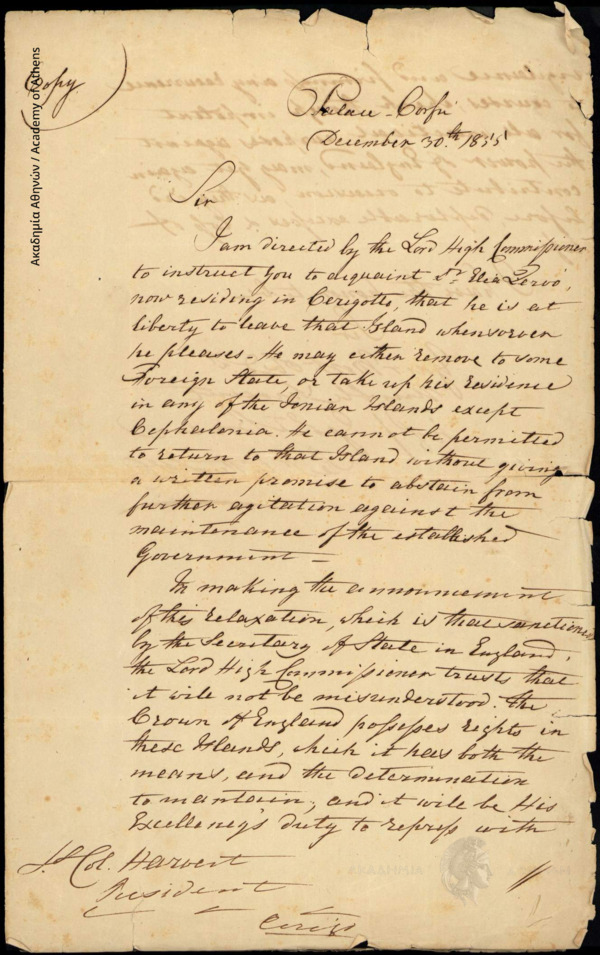 Ακαδημία Αθηνών / Academy of Athens
Copy
Palace Corfú
December 30.th 1855
Sir
I am directed by the Lord High Commissioner
to instruct you to acquaint Sr. Elia Zervó,
now residing in Cerigotto, that he is at
liberty to leave that Island whensoever
he pleases - He may either remove to some
Foreign State, or take up his residence
in any of the Ionian Islands except
Cephalonia. He cannot be permitted
to return to that Island without giving
a written promise to abstain from
further agitation against the
maintenance of the established
Government -
In making the announcement
of this relaxation, which is that sanctioned
by the Secretary of State in England,
the Lord High Commissioner trusts that
it will not be misunderstood. The
Crown of England possesses rights in
these Islands, which it has both the
means, and the determination
to mantain, and it will be His
Excellency's duty to repress with
Lt Col. Harvest
Resident
Cerigo
//